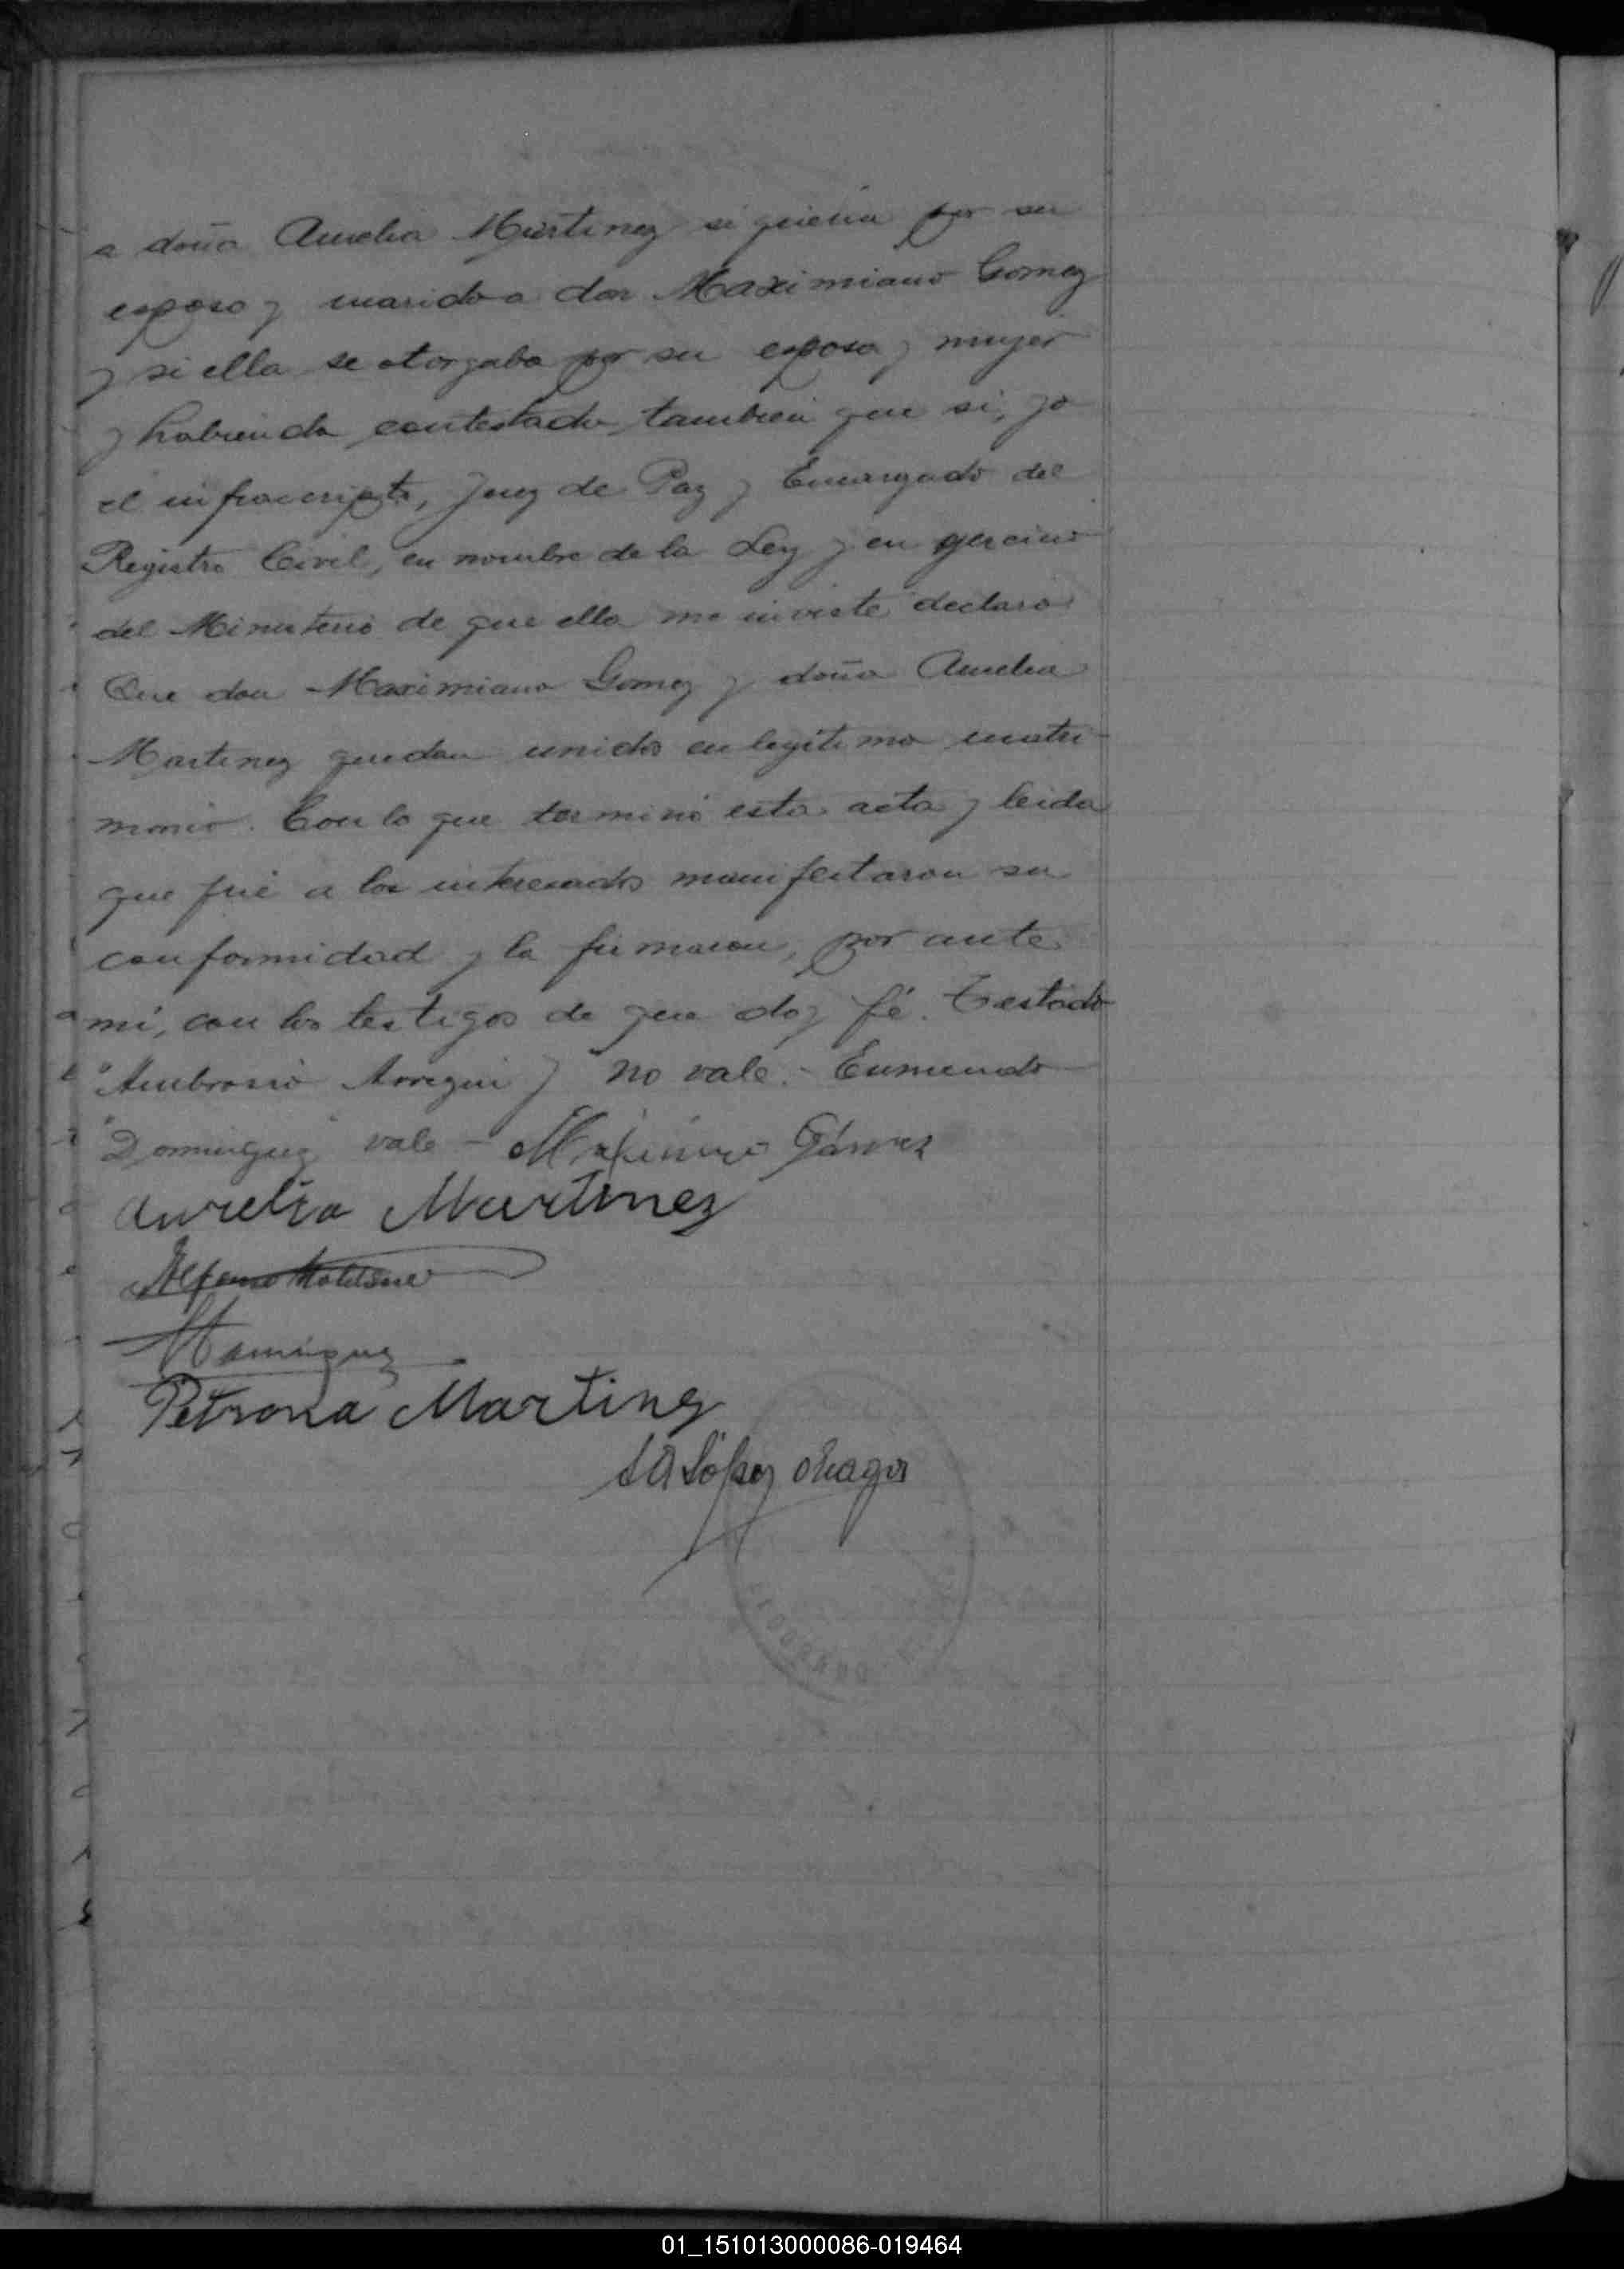 a doña Aurelia Martinez si queria por su
esposo y marido a don Maximiano Gomez
y si ella se otorgaba por su esposa y mujer
y habiendo contestado tambien que si, yo
el infrascripto, Juez de Paz y Encargado del
Registro Civil, en nombre de la Ley y en gercicio
del Ministerio de que ella me inviste declaro
Que don Maximiano Gomez y doña Aurelia
Martinez quedan unidos en legitimo matri-
monio. Con lo que terminó esta acta y leida
que fué a los interesados manifestaron su
conformidad y la firmaron, por ante
mí, con los testigos de que doy fé. Testado
"Ambrosio Arregui y" no vale. - Enmendo
"Dominguez" vale - Maximiano Gómez
Aurelia Martinez
Alfonso
Petrona Martinez
López
01_151013000086-019464